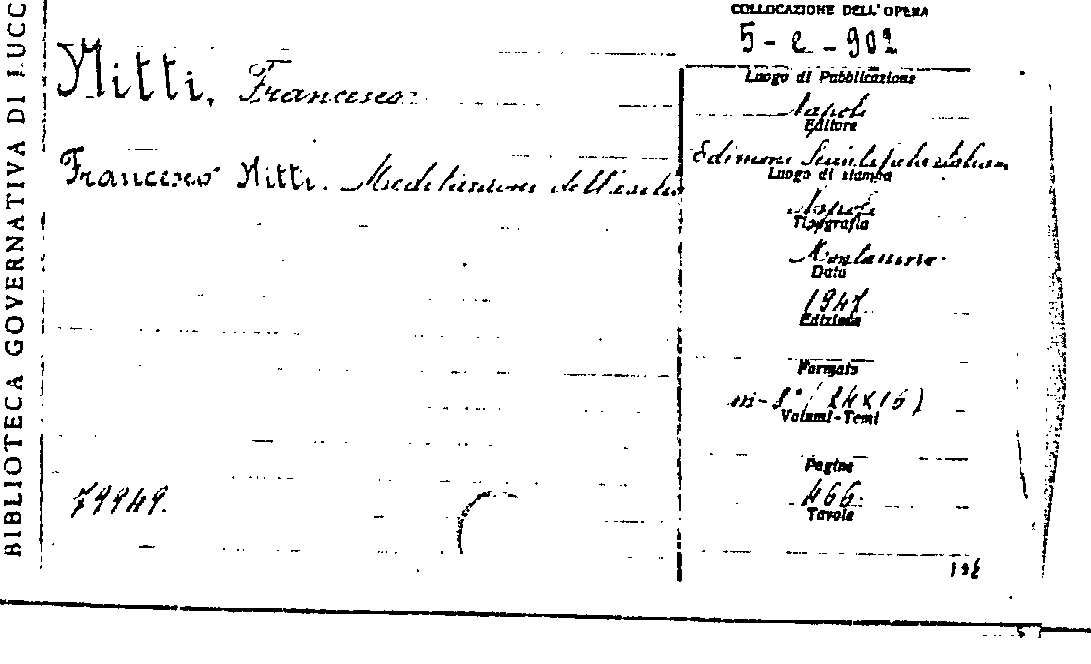 BIBLIOTECA GOVERNATIVA DI LUCC
COLLOCAZIONE DELL'OPERA
5-e-902
Nitti, Francesco
Francesco Nitti. Meditazioni dell'esilio
79949.
Luogo di Pubblicazione
Napoli
Editore
Edizioni Scientifiche italiane
Luogo di stampa
Napoli
Tipografia
Montanino
Data
1947
Edizione
Formato
in-8°(24x16)
Volumi-Tomi
Pagine
466.
Tavole